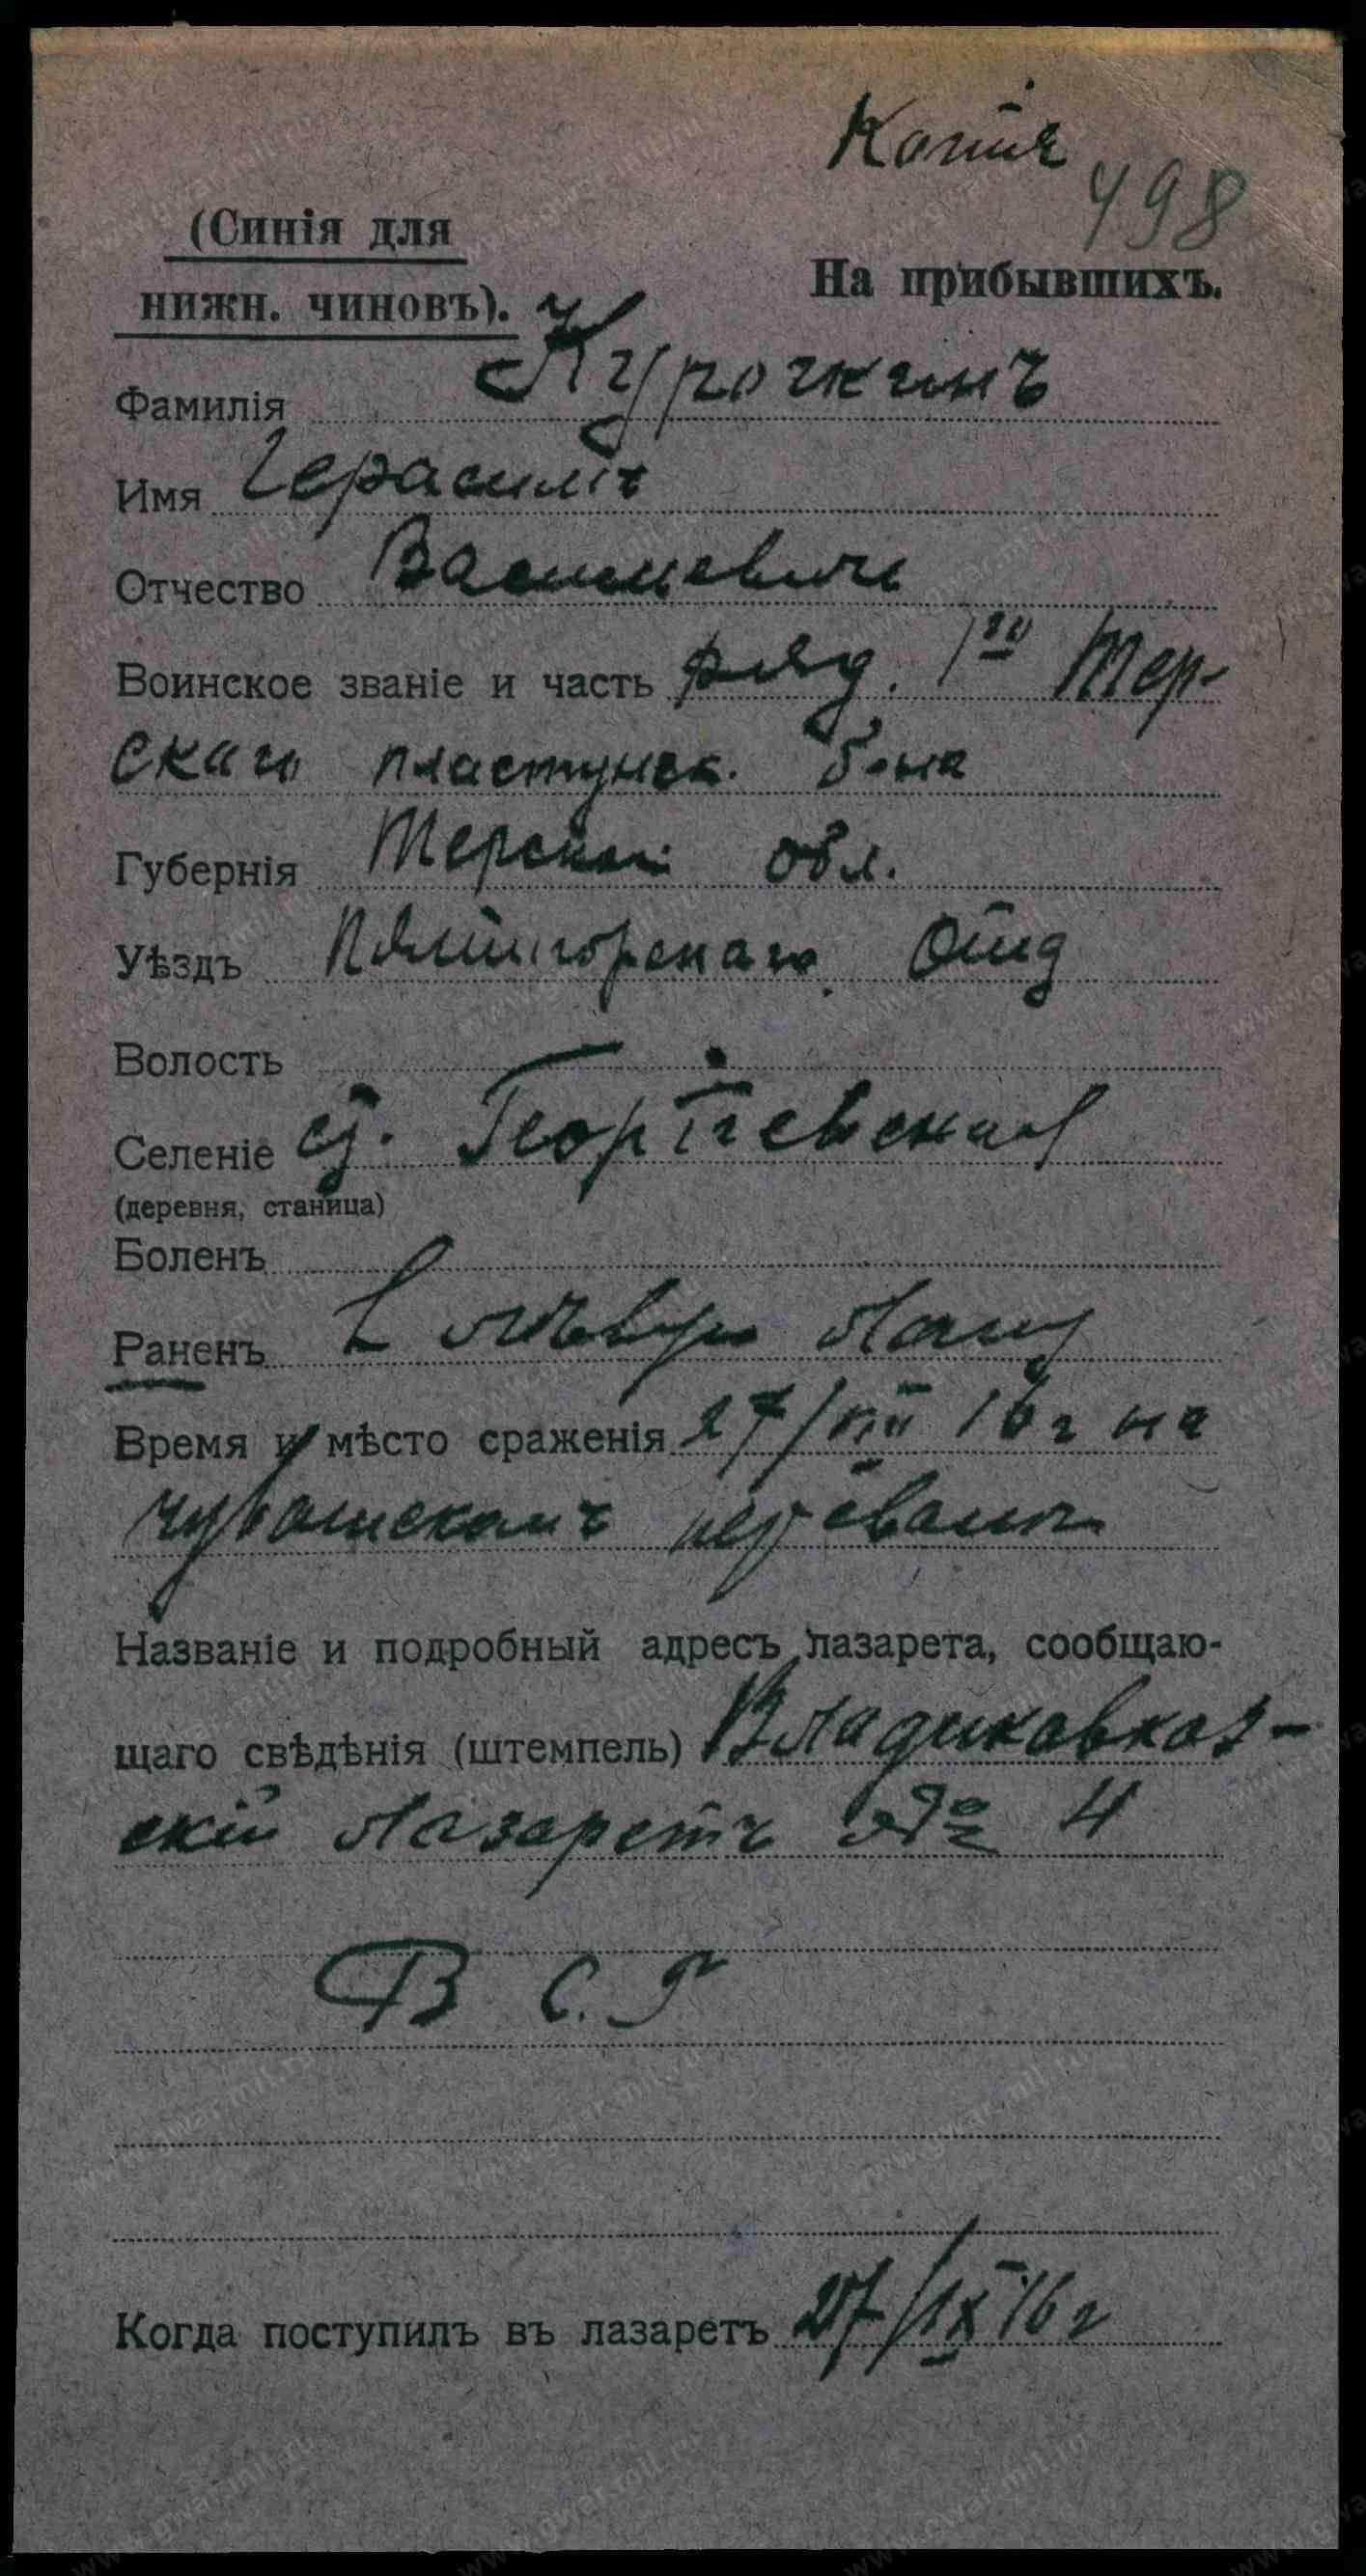 Копія
498
(Синія для
На прибывшихъ.
нижн. чиновъ).
Фамилія Курочкинъ
Имя Герасимъ
Отчество Васильевичъ
Воинское званіе и часть ряд. 1го Тер-
скаго пластунск. б-на
Губернія Терской обл.
Уѣздъ Пятигорскаго Отд
Волость
Селеніе ст. Георгіевской
(деревня, станица)
Боленъ
Раненъ въ лѣвую
Время и мѣсто сраженія 27/VIII 16 г на
перевалѣ
Названіе и подробный адресъ лазарета, сообщаю-
щаго свѣдѣнія (штемпель) Владикавказ-
скій Лазаретъ № 4
В С. Г
Когда поступилъ въ лазаретъ 27/IX 16 г